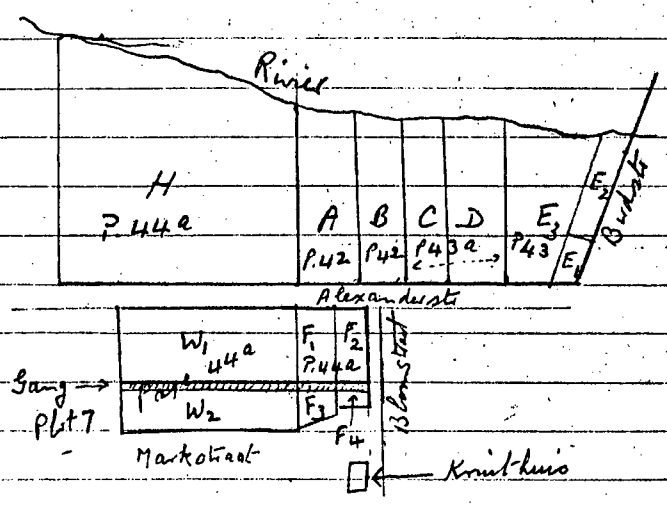 Rivier
H
P. 44a
A
P. 42
B
P42
C D
P43a
E3
P43
E2
E1
Birdstr
Alexanderstr
W1
44a
F1 F2
P. 44a
Gang
Plot 7
W2
F3
F4
Markstraat
Blomstraat
Kruithuis